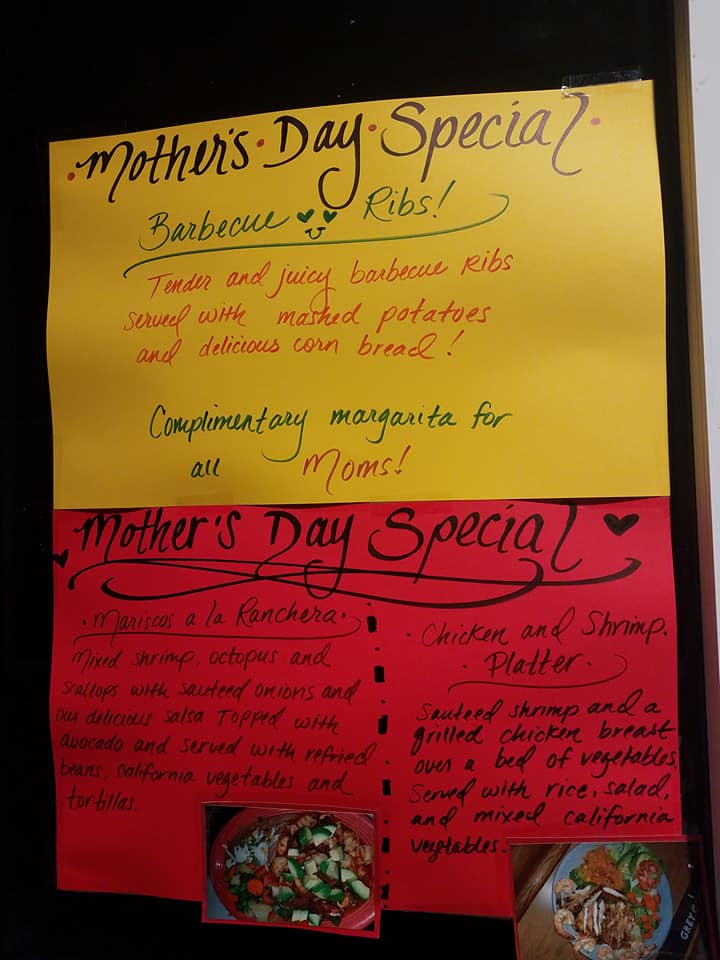 Mother's Day Special
Barbecue Ribs!
Tender and juicy barbecue Ribs
served with mashed potatoes
and delicious corn bread!
Complimentary margarita for
all Moms!
Mother's Day Special
Mariscos a la Ranchera
Mixed shrimp, octopus and
scallops with sauteed onions and
our delicious salsa Topped with
avocado and served with refried
beans, California vegetables and
tortillas.
Chicken and Shrimp.
Platter.
Sauteed shrimp and a
grilled chicken breast
over a bed of vegetables.
Served with rice, salad,
and mixed california
vegetables.